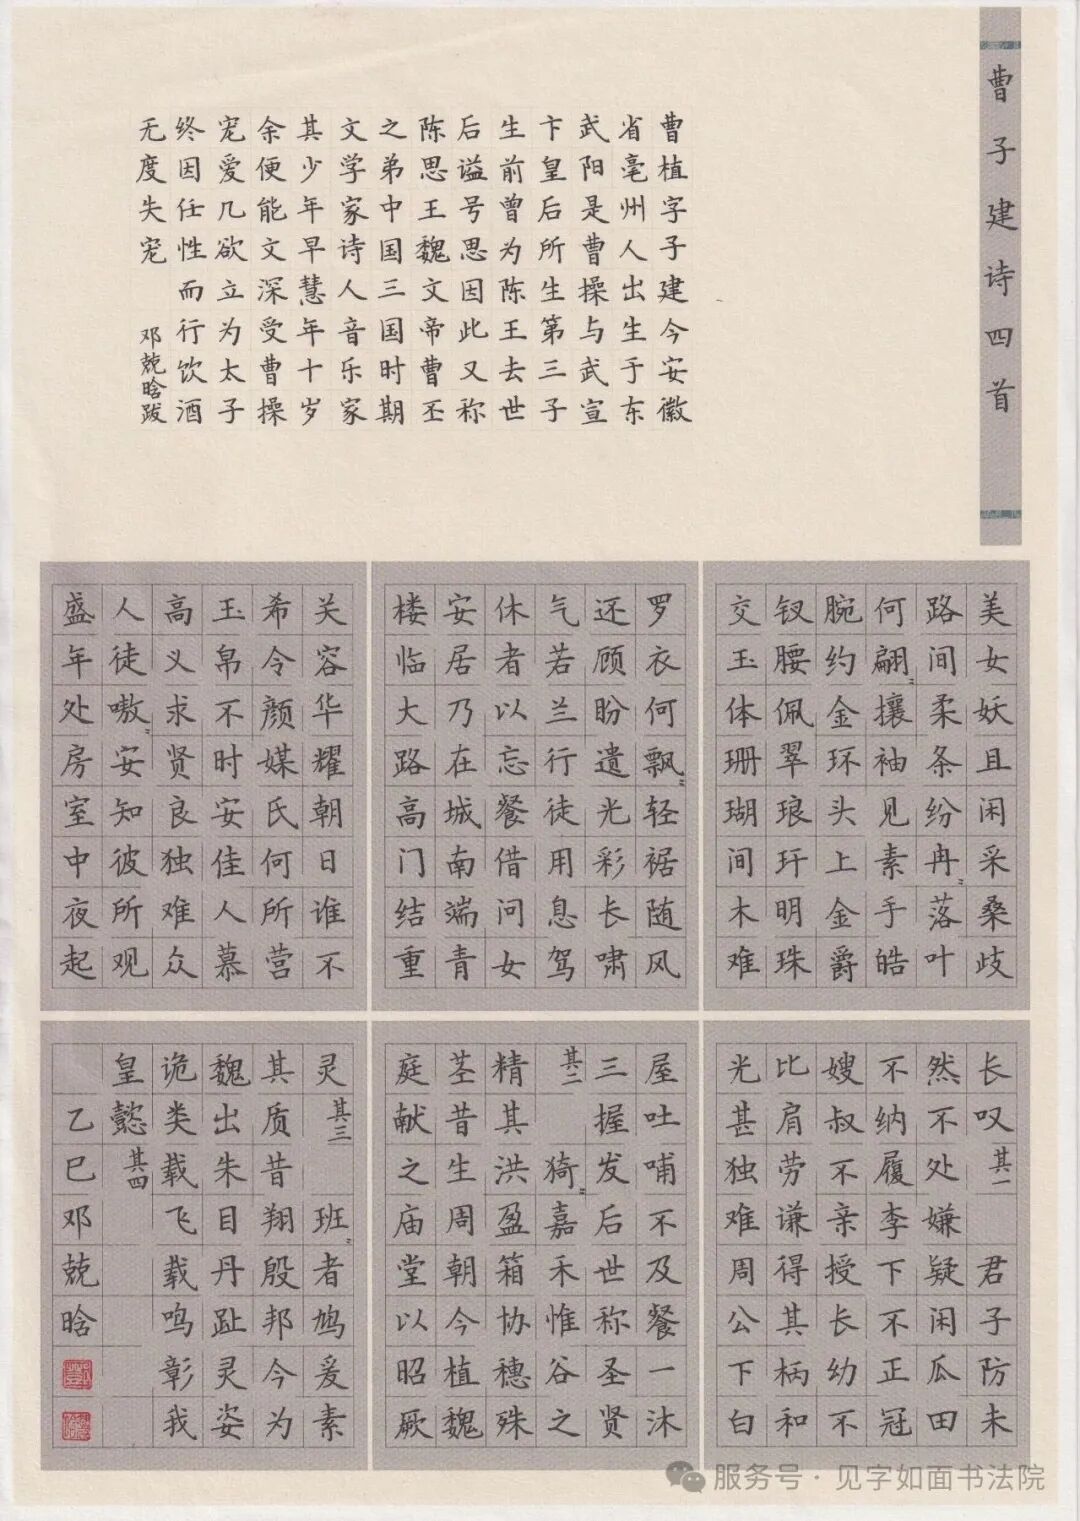 曹子建诗四首
曹植字子建今安徽
省毫州人出生于东
武阳是曹操与武宣
卞皇后所生第三子
生前曾为陈王去世
后谥号思因此又称
陈思王魏文帝曹丕
之弟中国三国时期
文学家诗人音乐家
其少年早慧年十岁
余便能文深受曹操
宠爱几欲立为太子
终因任性而行饮酒
无度失宠 邓兢晗跋
美女妖且闲采桑歧
路间柔条纷冉〻落叶
何翩〻攘袖见素手皓
腕约金环头上金爵
钗腰佩翠琅玕明珠
交玉体珊瑚间木难
罗衣何飘〻轻裾随风
还顾盼遗光彩长啸
气若兰行徒用息驾
休者以忘餐借问女
安居乃在城南端青
楼临大路高门结重
关容华耀朝日谁不
希令颜媒氏何所营
玉帛不时安佳人慕
高义求贤良独难众
人徒嗷〻安知彼所观
盛年处房室中夜起
长叹 其一 君子防未
然不处嫌疑闲瓜田
不纳履李下不正冠
嫂叔不亲授长幼不
比肩劳谦得其柄和
光甚独难周公下白
屋吐哺不及餐一沐
三握发后世称圣贤
其二 猗〻嘉禾惟谷之
精其洪盈箱协穗殊
茎昔生周朝今植魏
庭献之庙堂以昭厥
灵 其三 班〻者鸠爰素
其质昔翔殷邦今为
魏出朱目丹趾灵姿
诡类载飞载鸣彰我
皇懿 其四
乙巳邓兢晗
服务号 · 见字如面书法院